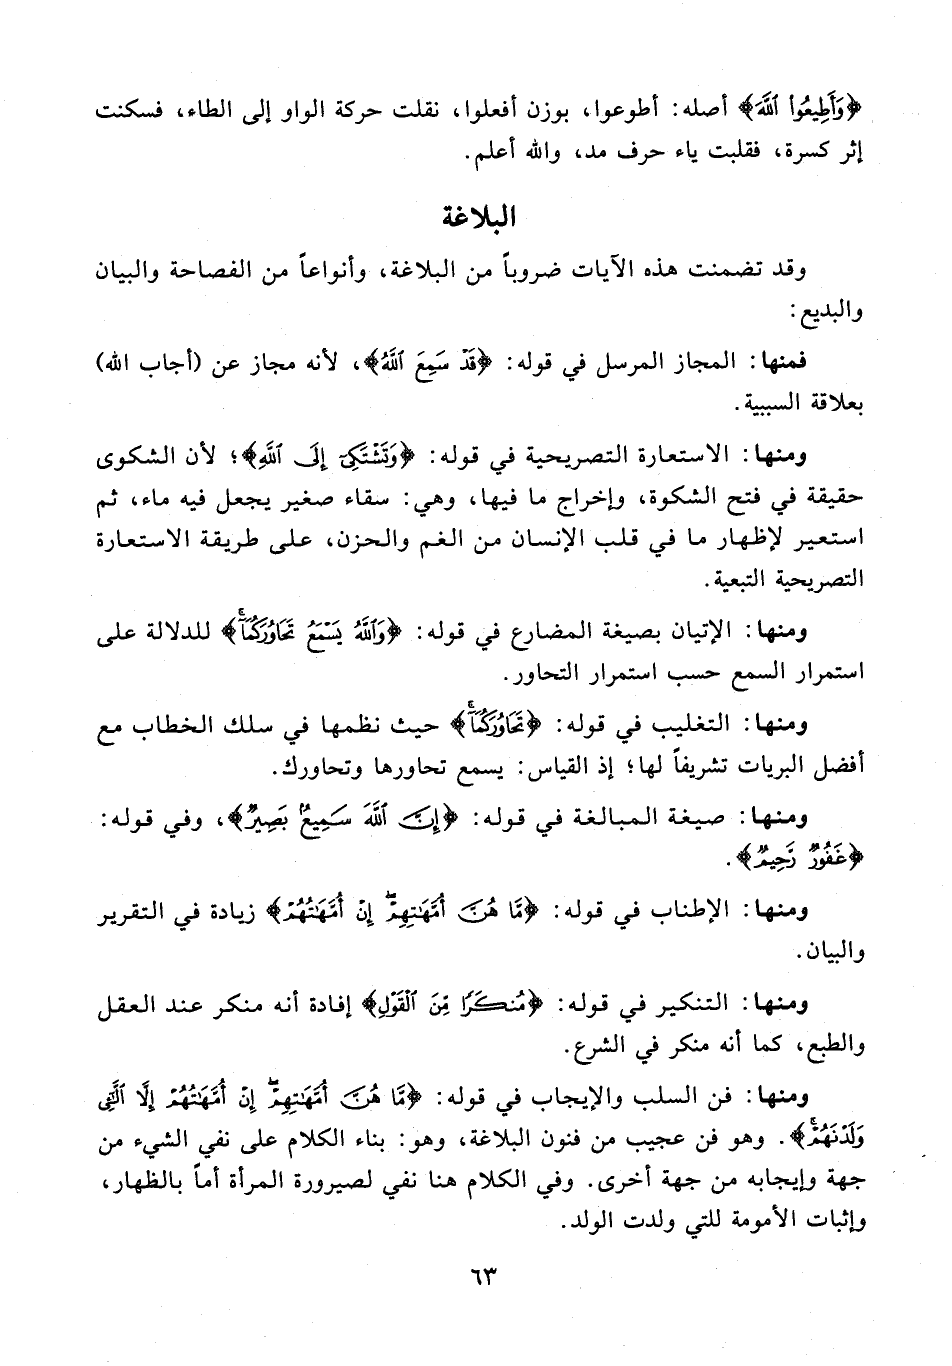 ﴿وَأَطِيعُوا۟ ٱللَّهَ﴾ أصله: أطوعوا، بوزن أفعلوا، نقلت حركة الواو إلى الطاء، فسكنت
إثر كسرة، فقلبت ياء حرف مد، والله أعلم.
البلاغة
وقد تضمنت هذه الآيات ضروباً من البلاغة، وأنواعاً من الفصاحة والبيان
والبديع:
فمنها: المجاز المرسل في قوله: ﴿قَدْ سَمِعَ ٱللَّهُ﴾، لأنه مجاز عن (أجاب الله)
بعلاقة السببية.
ومنها: الاستعارة التصريحية في قوله: ﴿وَتَشْتَكِىٓ إِلَى ٱللَّهِ﴾؛ لأن الشكوى
حقيقة في فتح الشكوة، وإخراج ما فيها، وهي: سقاء صغير يجعل فيه ماء، ثم
استعير لإظهار ما في قلب الإنسان من الغم والحزن، على طريقة الاستعارة
التصريحية التبعية.
ومنها: الإتيان بصيغة المضارع في قوله: ﴿وَٱللَّهُ يَسْمَعُ تَحَاوُرَكُمَآ ۚ﴾ للدلالة على
استمرار السمع حسب استمرار التحاور.
ومنها: التغليب في قوله: ﴿تَحَاوُرَكُمَآ ۚ﴾ حيث نظمها في سلك الخطاب مع
أفضل البريات تشريفاً لها؛ إذ القياس: يسمع تحاورها وتحاورك.
ومنها: صيغة المبالغة في قوله: ﴿إِنَّ ٱللَّهَ سَمِيعٌۢ بَصِيرٌ﴾، وفي قوله:
﴿غَفُورٌ رَّحِيمٌ﴾.
ومنها: الإطناب في قوله: ﴿مَّا هُنَّ أُمَّهَـٰتِهِمْ ۖ إِنْ أُمَّهَـٰتُهُمْ﴾ زيادة في التقرير
والبيان.
ومنها: التنكير في قوله: ﴿مُنكَرًا مِّنَ ٱلْقَوْلِ﴾ إفادة أنه منكر عند العقل
والطبع، كما أنه منكر في الشرع.
ومنها: فن السلب والإيجاب في قوله: ﴿مَّا هُنَّ أُمَّهَـٰتِهِمْ ۖ إِنْ أُمَّهَـٰتُهُمْ إِلَّا ٱلَّـٰٓـِٔى
وَلَدْنَهُمْ ۚ﴾. وهو فن عجيب من فنون البلاغة، وهو: بناء الكلام على نفي الشيء من
جهة وإيجابه من جهة أخرى. وفي الكلام هنا نفي لصيرورة المرأة أماً بالظهار،
وإثبات الأمومة للتي ولدت الولد.
٦٣